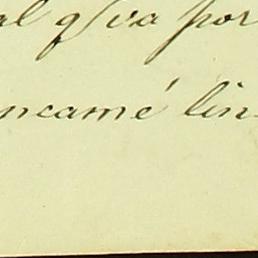 al q̃ va por
ncamé lin